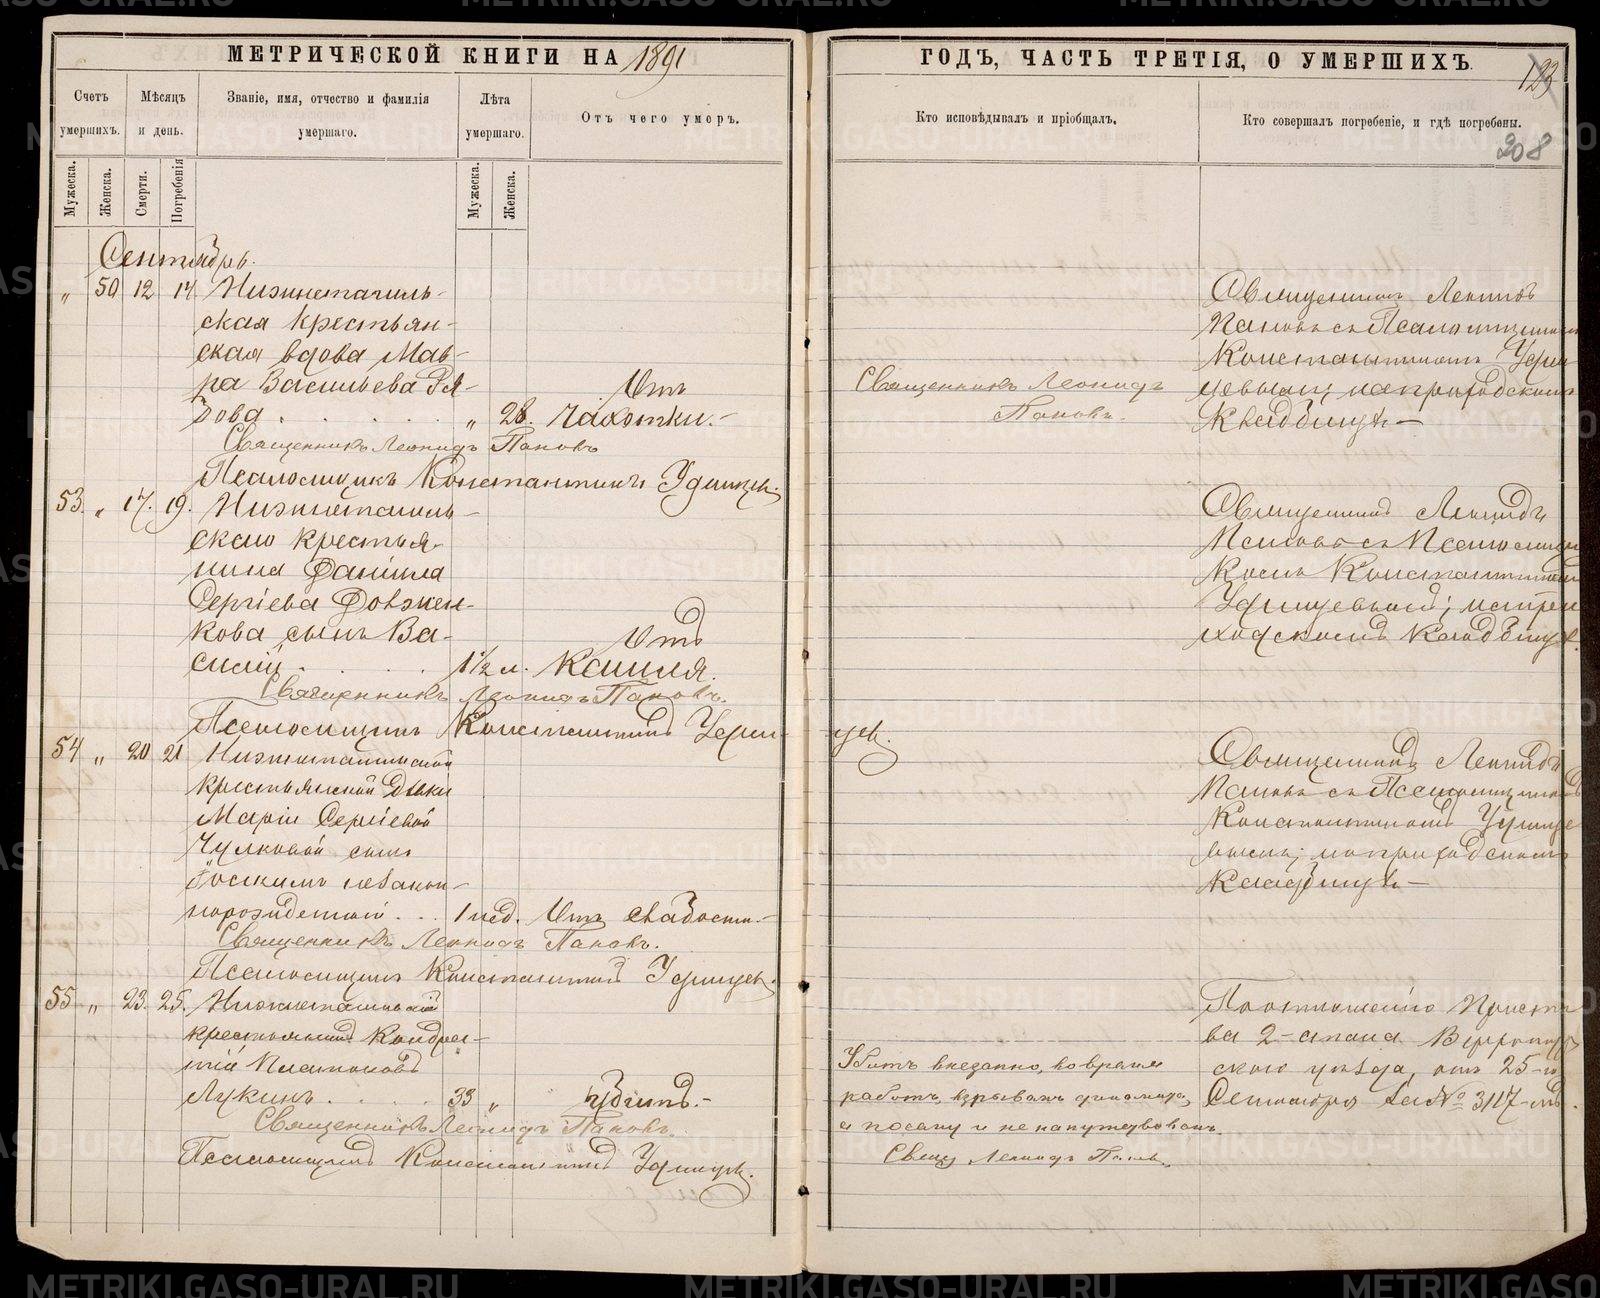 МЕТРИЧЕСКОЙ КНИГИ НА 1891
ГОДЪ, ЧАСТЬ ТРЕТІЯ, О УМЕРШИХЪ.
123
208
Счетъ умершихъ.
Мѣсяцъ и день.
Званіе, имя, отчество и фамилія умершаго.
Лѣта умершаго.
Отъ чего умеръ.
Кто исповѣдывалъ и пріобщалъ.
Кто совершалъ погребеніе, и гдѣ погребены.
Мужеска.
Женска.
Смерти.
Погребенія
Мужеска.
Женска.
Сентябрь.
" 50 12 14 Нижнетагиль-
ская крестьян-
ская вдова Мав-
ра Васильева
Отъ
" 28. чахотки.-
Священникъ Леонидъ Пановъ
Псаломщикъ Константинъ Удинцев.
Священникъ Леонидъ
Пановъ.
Священникъ Леонидъ
Пановъ съ Псаломщикомъ
Константиномъ Удин
цевымъ; на приходскомъ
кладбищѣ-
53 " 17. 19. Нижнетагиль-
скаго крестья-
нина Даніила
Сергіева Довжен-
кова сынъ Ва-
силій 1½ л.
Отъ
кашля.
Священникъ Леонидъ Пановъ.
Псаломщикъ Константинъ Удин-
цев.
Священникъ Леонидъ
Пановъ съ Псаломщи
комъ Константиномъ
Удинцевымъ; на при
ходскомъ кладбищѣ.
54 " 20 21 Нижнетагильской
крестьянской дѣвки
Маріи Сергіевой
Чулковой сынъ
Іоакимъ незакон-
норожденный 1 нед. Отъ слабости.-
Священникъ Леонидъ Пановъ.
Псаломщикъ Константинъ Удинцев.
Священникъ Леонидъ
Пановъ съ Псаломщикомъ
Константиномъ Удинце
вымъ; на приходскомъ
кладбищѣ-
55 " 23. 25. Нижнетагильскій
крестьянинъ Кондра-
тій Платоновъ
Лукинъ 33 " убитъ.-
Священникъ Леонидъ Пановъ.
Псаломщикъ Константинъ Удинцев.
Убитъ внезапно, во время
работъ, взрывомъ динамита,
а посему и не напутствованъ.
Свящ Леонидъ Пановъ.
По отношенію Приста
ва 2-стана Верхотур
скаго уѣзда, отъ 25-го
Сентября за № 3117-мъ.
METRIKI.GASO-URAL.RU